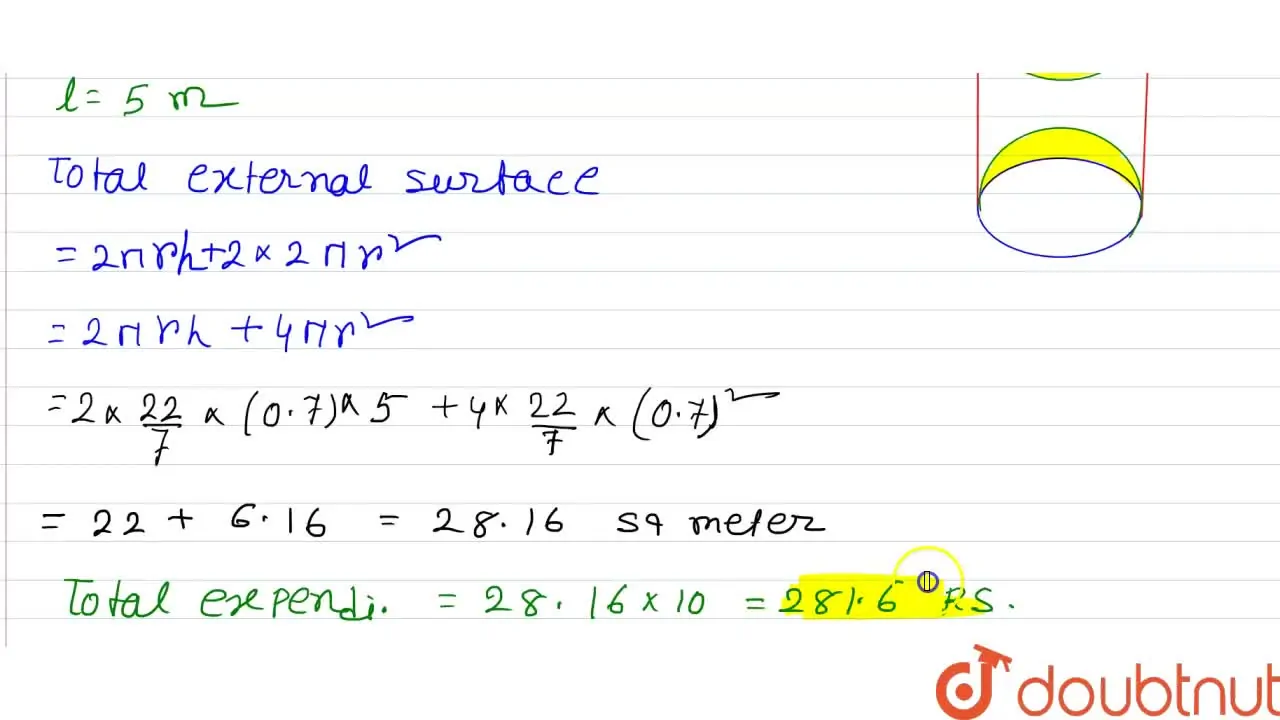 l = 5 m
Total external surface
= 2πrh + 2 × 2πr²
= 2πrh + 4πr²
= 2 × 22/7 × (0.7) × 5 + 4 × 22/7 × (0.7)²
= 22 + 6.16 = 28.16 sq meter
Total expendi. = 28.16 × 10 = 281.6 RS.
doubtnut